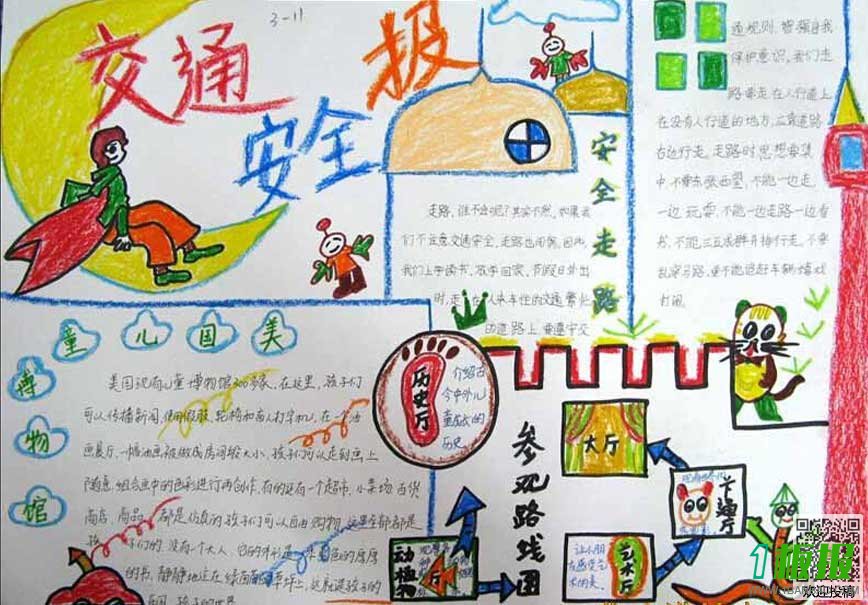 3-11
交通
安全
报
安全走路
走路,谁不会呢?其实不然,如果我
们不注意交通安全,走路也闯祸,因此,
我们上学读书,放学回家,节假日外出
时,走在人来车往的交通繁忙
的道路上,要遵守交
通规则,增强自我
保护意识,我们走
路要走在人行道上
在没有人行道的地方,应靠道路
右边行走,走路时思想要集
中,不要东张西望,不能一边走
一边玩耍,不能一边走路一边看
书,不能三五成群并排行走,不要
乱穿马路,更不能追赶车辆嬉戏
打闹.
美国儿童
博物馆
美国现有儿童博物馆300多家,在这里,孩子们
可以传播新闻,使用假肢、轮椅和盲人打字机,在一个油
画展厅,一幅油画被做成房间般大小,孩子们可以走到画上
随意组合画中的色彩进行再创作,有的还有一个超市,小菜场,百货
商店,商品都是仿真的孩子们可以自由购物,这里全部都是
孩子们的.没有一个大人,它的外形
的书,静静地立在绿茵茵的草坪上,这就是孩子的
孩子的世界.
历史厅
介绍古
今中外儿
童成长的
历史
参观路线图
大厅
卡通厅
艺术厅
让小朋
友感受艺
术的美.
动植物厅
糖报
欢迎投稿